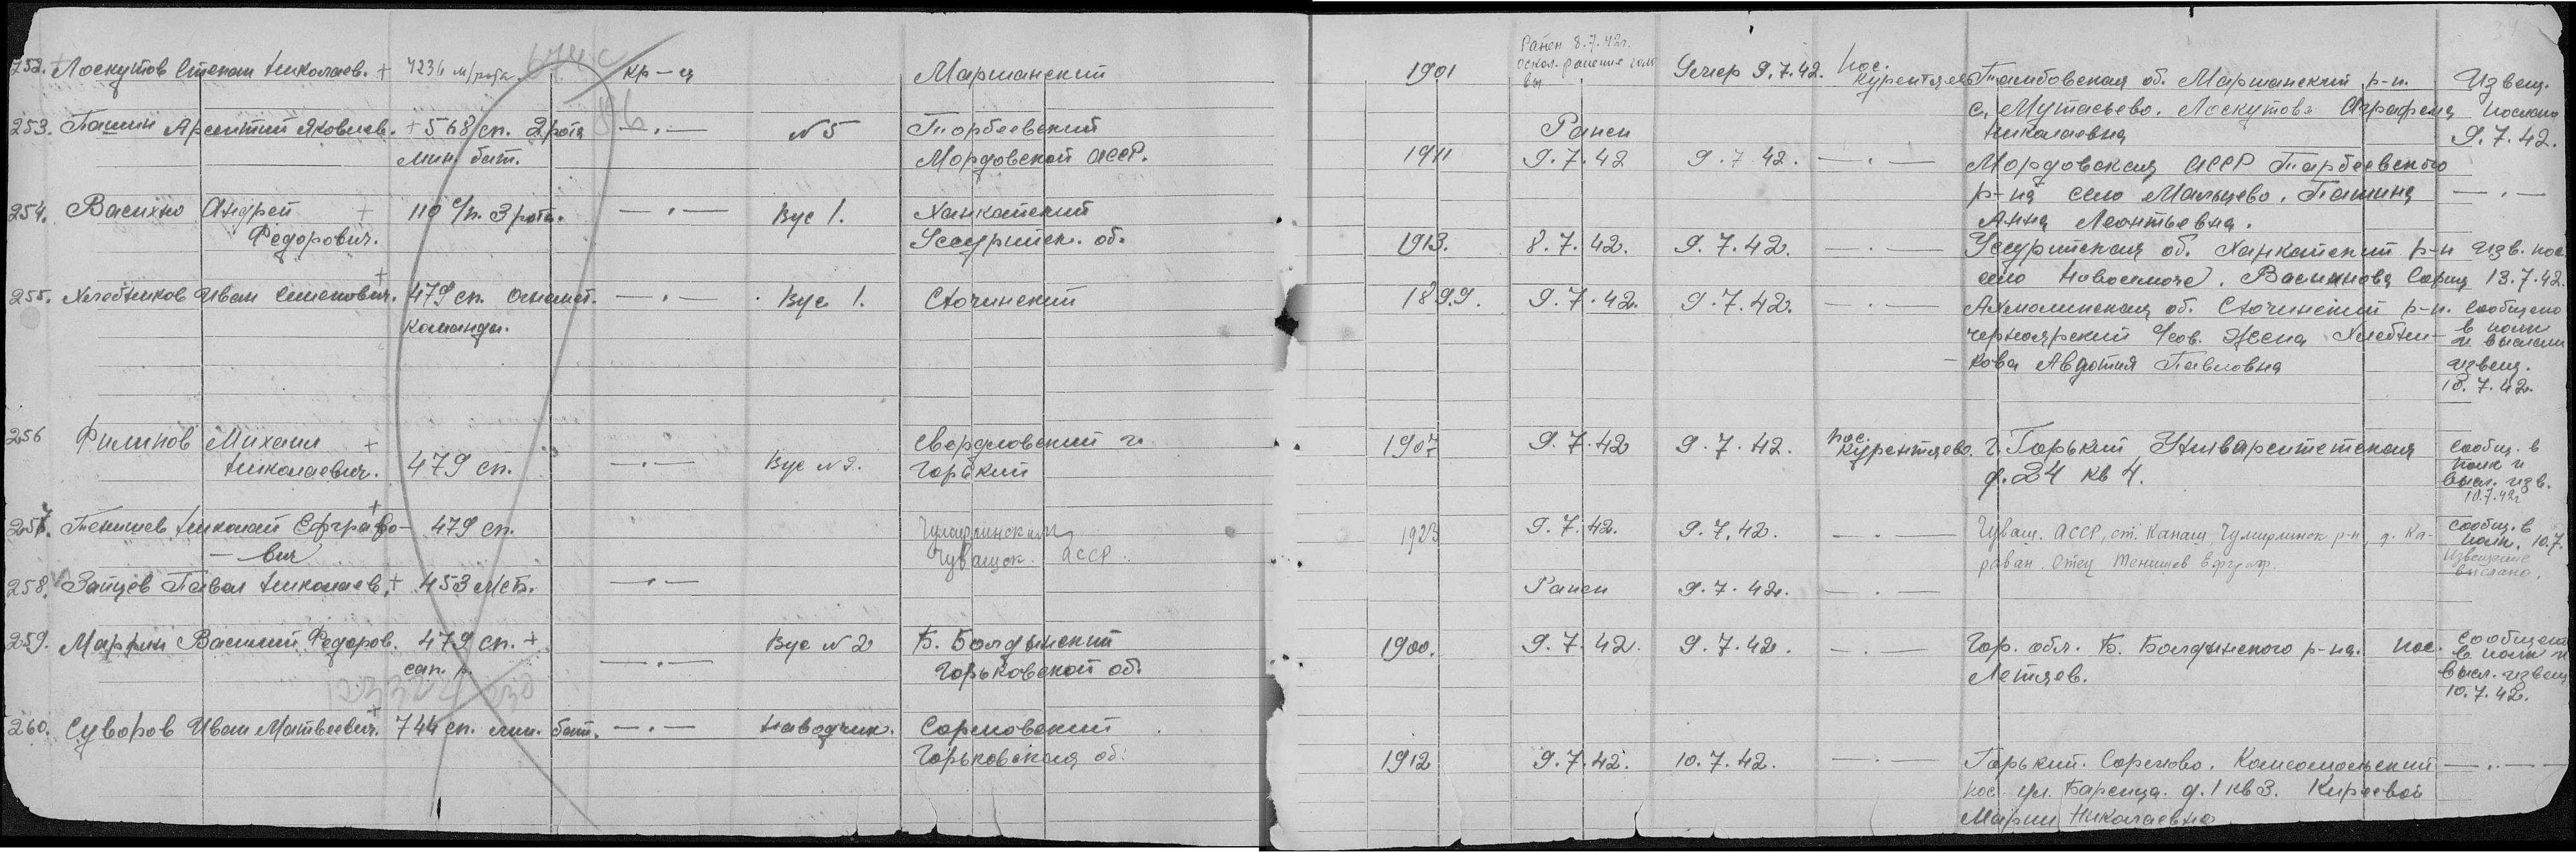 252. Лоскутов Степан Николаев. + 4236 м/рота. кр-ц Маршанский
253. Пашин Арсентий Яковлев. + 568 сп. 2 рота — . — N 5 Торбеевский
мин. бат. Мордовской АССР.
254. Васихно Андрей + 110 с/п. 3 рота. — . — Вус 1. Ханкайский
Федорович. Уссурийск. об.
255. Хлебников Иван Семенович. + 479 сп. — . — Вус 1.
команды.
256 Филипов Михаил + Свердловский г.
Николаевич. 479 сп. — . — Вус N 2. Горький
257. Тенишев Николай Ефграфо- + 479 сп.
- вич Чувашск. АССР.
258. Зайцев Павел Николаев. + 453 МСБ. — . —
259. Василий Федоров. 479 сп. + Вус N 2 Б. Болдинский
сап. р. — . — Горьковской об.
260. Суворов Иван Матвеевич. + 744 сп. мин. бат. — . — Наводчик. Сормовский
Горьковская об.
Ранен 8.7.42г.
оскол. ранение голо
вы
1901 Умер 9.7.42. пос. Тамбовская об. Маршанский р-н. Извещ.
с. Мутасьево. Лоскутова Аграфена послано
Ранен Николаевна 9.7.42.
1911 9.7.42 9.7.42. — . — Мордовская АССР Тарбеевского
р-на село Мальцево. Пашина — . —
Анна Леонтьевна.
1913. 8.7.42. 9.7.42. — . — Уссурийская об. Ханкайский р-н Изв. пос.
село 13.7.42.
1899. 9.7.42. 9.7.42. — . — Акмолинская об. р-н. Сообщено
черноярский с/сов. Жена Хлебни- в полк
- кова Авдотия Павловна и выслали
извещ.
10.7.42.
1907 9.7.42 9.7.42. пос. г. Горький, Университетская сообщ. в
д. 24 кв 4. полк и
высл. изв.
10.7.42г
1923 9.7.42. 9.7.42. — . — Чуваш. АССР, ст. Канаш р-н, д. Ка- сообщ. в
раван. Отец Тенишев полк. 10.7.
Извещение
выслано.
Ранен 9.7.42. — . —
1900. 9.7.42. 9.7.42. — . — Гор. обл. Б. Болдинского р-на. пос. сообщено
в полк и
высл. извещ
10.7.42.
1912 9.7.42. 10.7.42. — . — Горький. Сормово. Комсомольский — . —
пос. ул. Баренца. д. 1 кв 3. Киреевой
Марии Николаевна